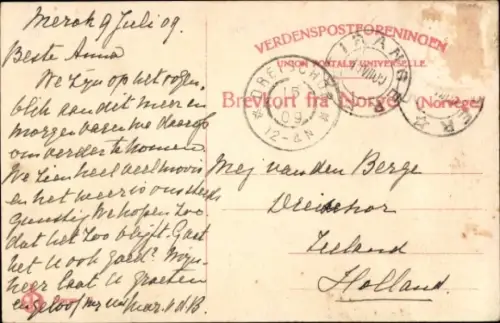 Merok 9 Juli 09.
Beste Anna
We zyn op het oogen-
blik aan dit meer en
morgen varen we daarop
om verder te komen
We zien heel veel moois
en het weer is ons steeds
gunstig We hopen zoo
dat het zoo blyft. Gaat
het u ook goed? Myn-
heer laat u groeten
en geloof my uw Mar. v d B.
VERDENSPOSTFORENINGEN
UNION POSTALE UNIVERSELLE
Brevkort fra Norge (Norvège)
DREISCHOR
15
09
12-2N
Mej van den Berge
Dreischor
Zeeland
Holland.